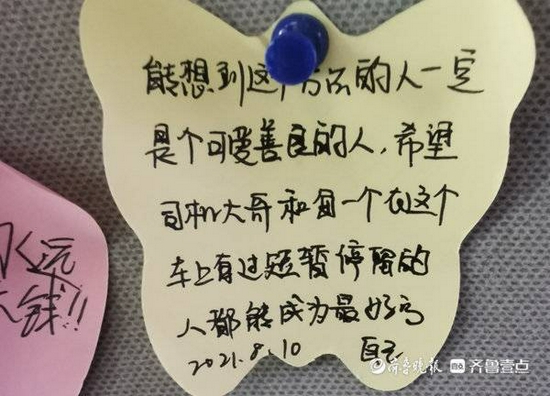 能想到这个方法的人一定
是个可爱善良的人,希望
司机大哥和每一个在这个
车上有过短暂停留的
人都能成为最好的
自己
2021.8.10
永远
钱!!
齐鲁晚报 齐鲁壹点